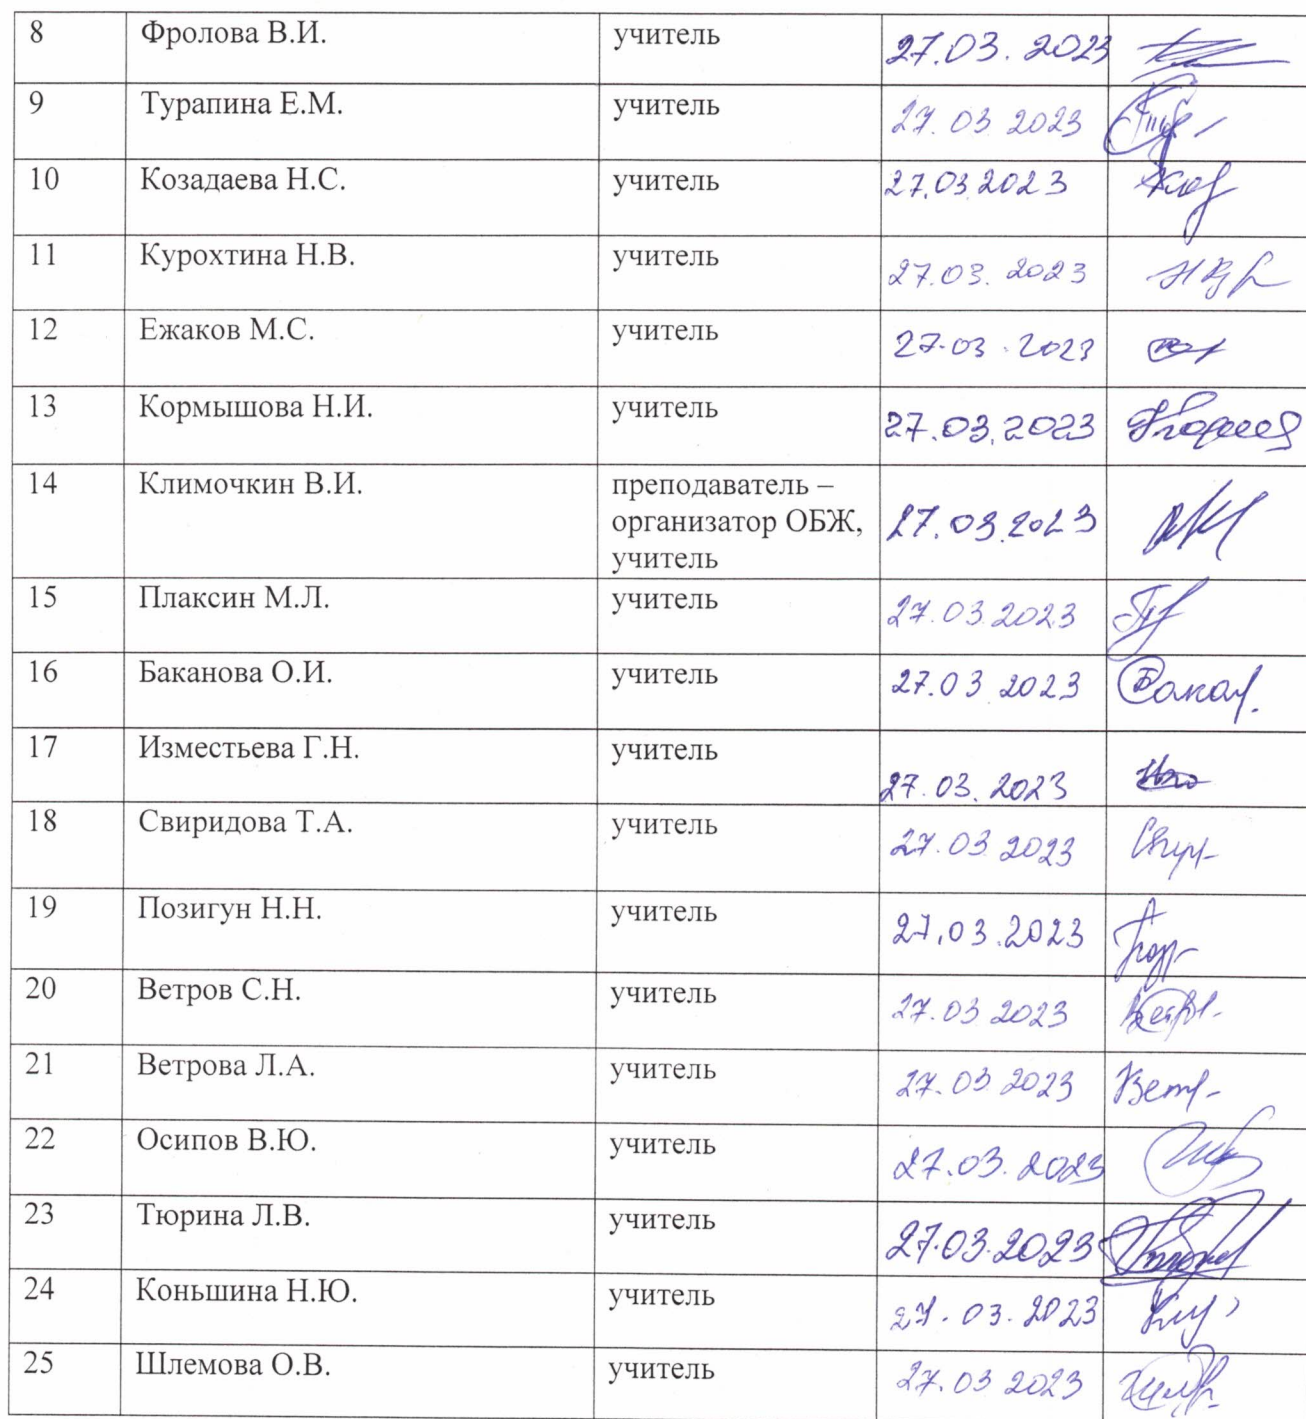 8 Фролова В.И. учитель 27.03.2023
9 Турапина Е.М. учитель 27.03.2023
10 Козадаева Н.С. учитель 27.03.2023
11 Курохтина Н.В. учитель 27.03.2023
12 Ежаков М.С. учитель 27.03.2023
13 Кормышова Н.И. учитель 27.03.2023
14 Климочкин В.И. преподаватель –
организатор ОБЖ, 27.03.2023
учитель
15 Плаксин М.Л. учитель 27.03.2023
16 Баканова О.И. учитель 27.03 2023
17 Изместьева Г.Н. учитель 27.03.2023
18 Свиридова Т.А. учитель 27.03.2023
19 Позигун Н.Н. учитель 27.03.2023
20 Ветров С.Н. учитель 27.03 2023
21 Ветрова Л.А. учитель 27.03 2023
22 Осипов В.Ю. учитель 27.03.2023
23 Тюрина Л.В. учитель 27.03.2023
24 Коньшина Н.Ю. учитель 27.03.2023
25 Шлемова О.В. учитель 27.03 2023